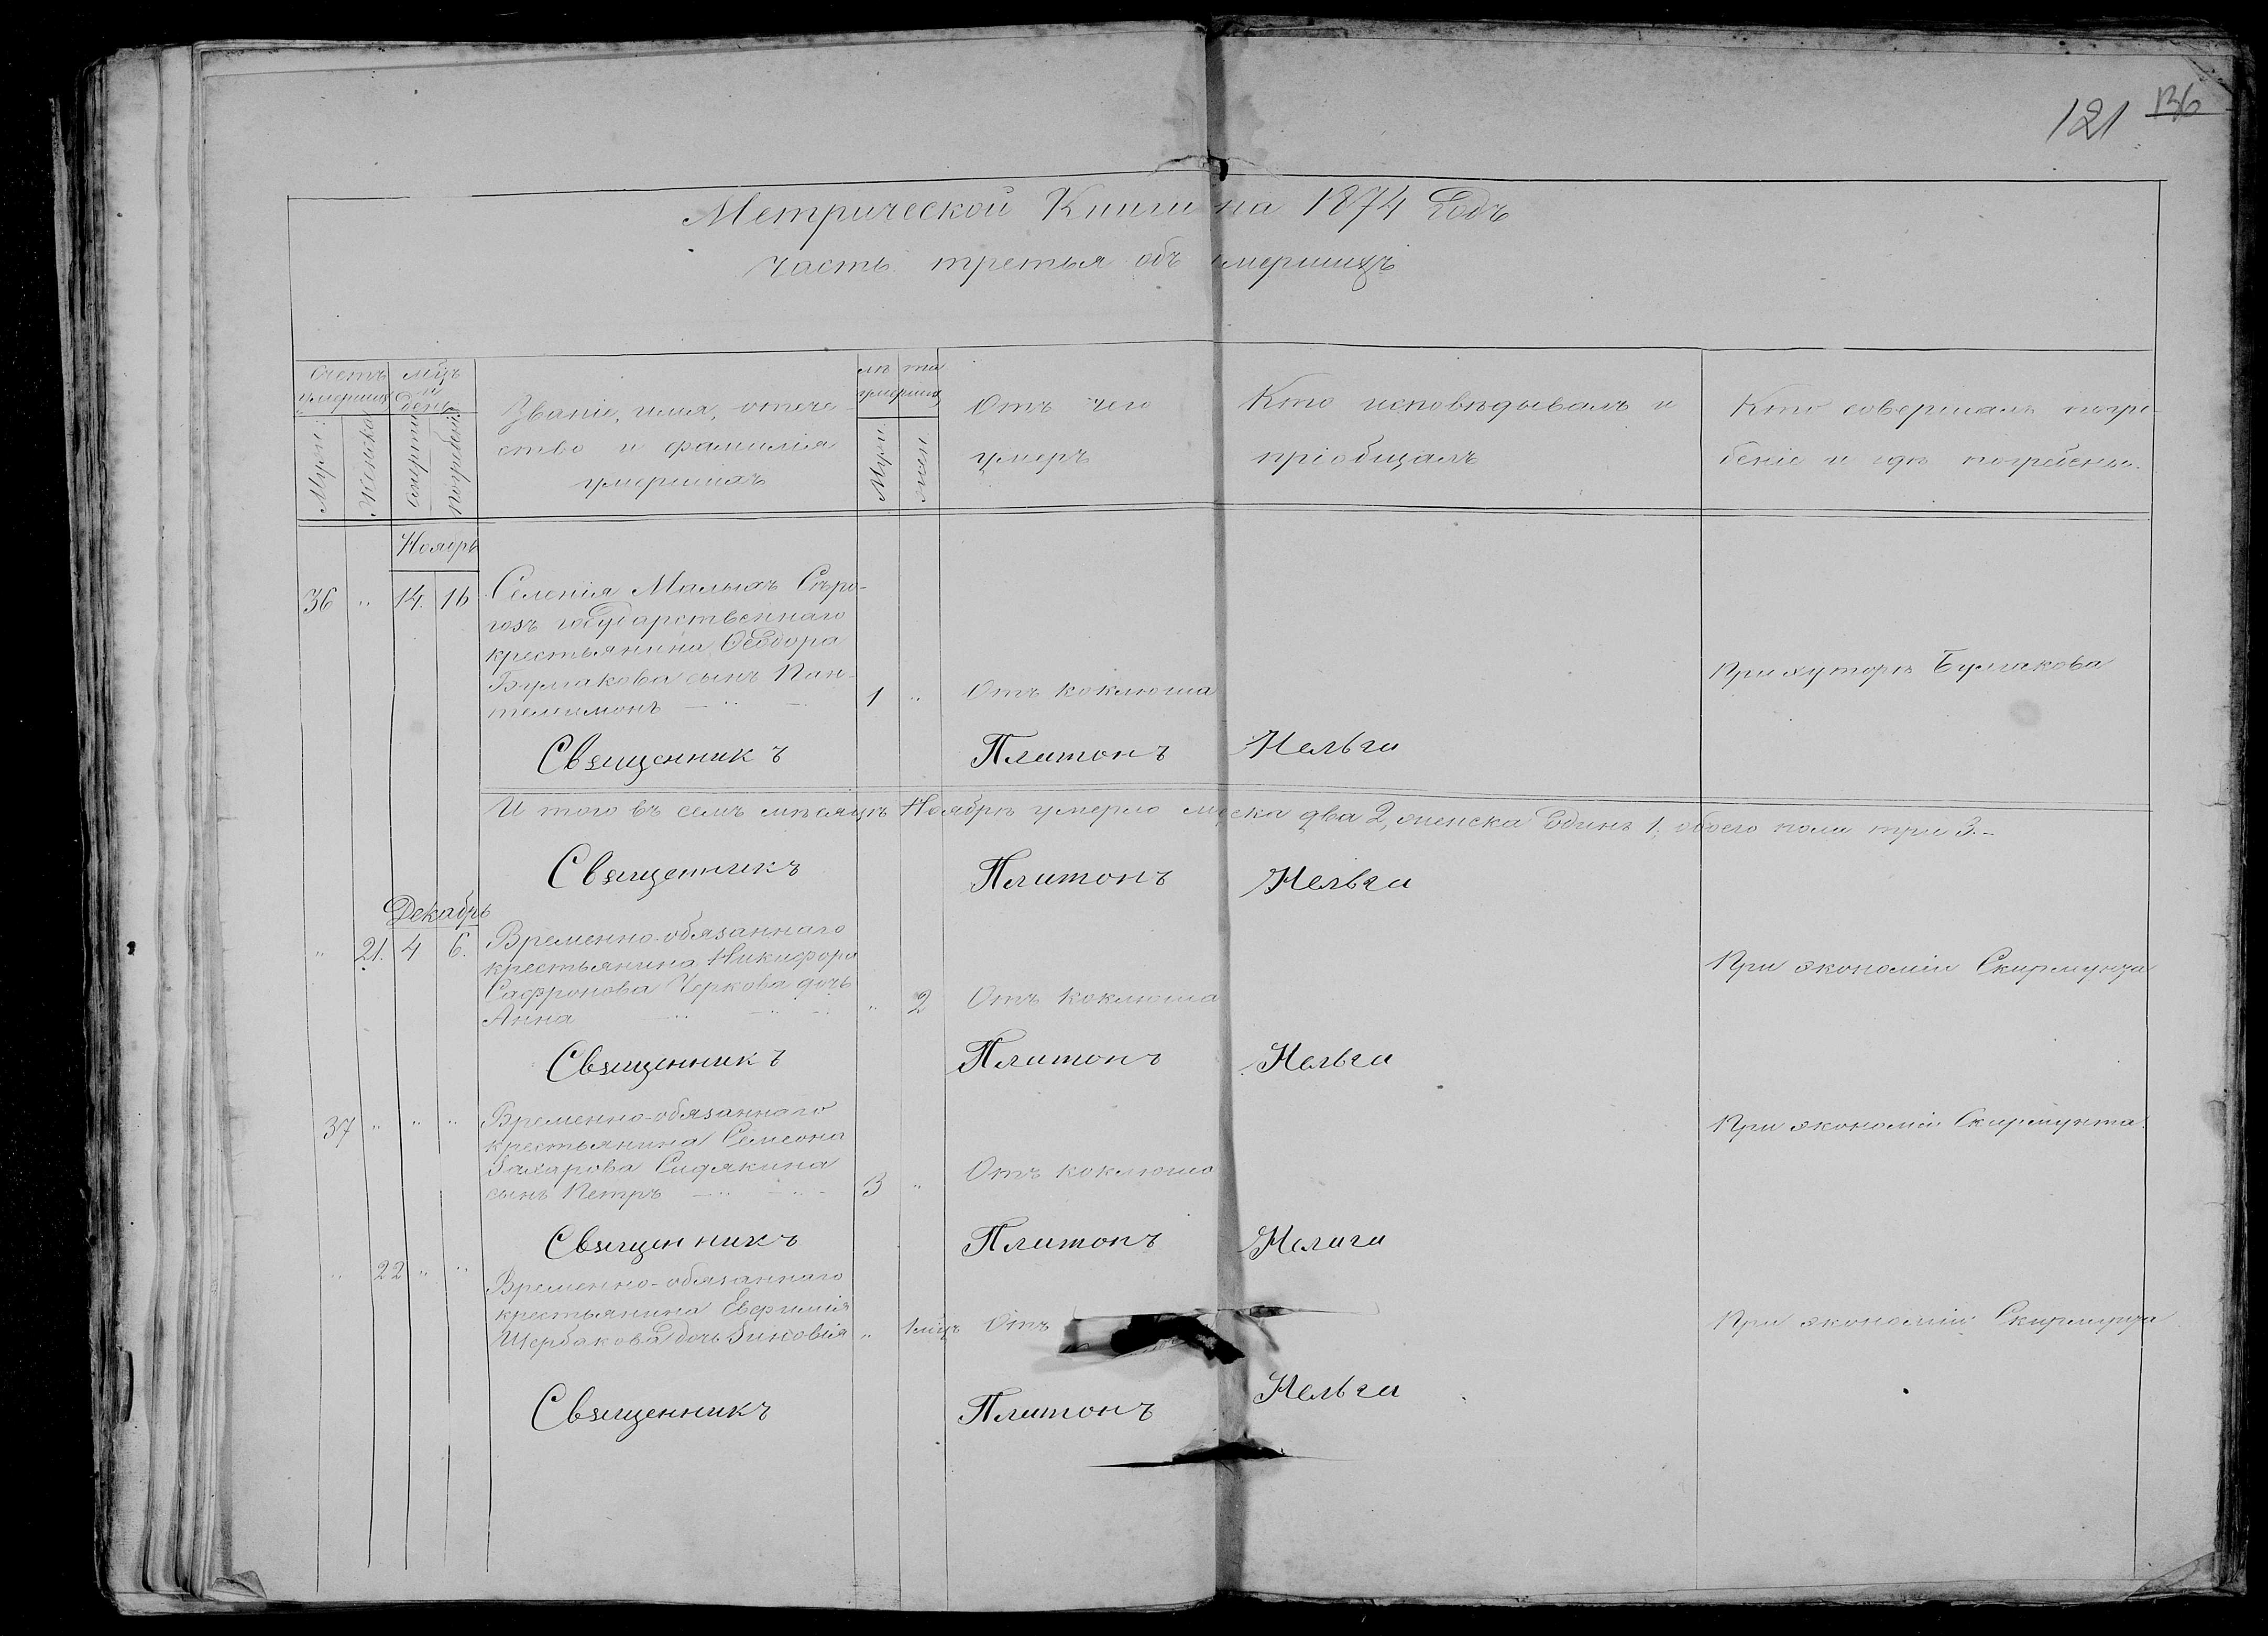 121 136
Метрической Книги на 1874 Годъ
часть третья объ умершихъ
Счетъ умершихъ
Муж:
Женска
мцъ и день
смерти
погребен:
Званіе, имя, отече-
ство и фамилія
умершихъ
лѣта умершихъ
Муж.
жен.
Отъ чего
умеръ
Кто исповѣдывалъ и
пріобщалъ
Кто совершалъ погре-
беніе и гдѣ погребены.
Ноябрь
36 " 14. 16
Селенія Малыхъ Сѣро-
гозъ государственнаго
крестьянина Ѳеодора
Булгакова сынъ Пан-
телеимонъ 1 " Отъ коклюша
При хуторѣ Булгакова
Священникъ Платонъ Нельга
И того въ семъ мѣсяцѣ Ноябрѣ умерло муска два 2, женска Одинъ 1, обоего пола три 3.-
Священникъ Платонъ Нельга
Декабрь
" 21. 4 6.
Временно-обязаннаго
крестьянина Никифора
Сафронова Черкова дочь
Анна " 2 Отъ коклюша
При экономіи Скирмунта
Священникъ Платонъ Нельга
37 " " "
Временно-обязаннаго
крестьянина Семеона
Захарова Сидякина
сынъ Петръ 3 " Отъ коклюша
При экономіи Скирмунта
Священникъ Платонъ Нельга
" 22 " "
Временно-обязаннаго
крестьянина Евфимія
Щербакова дочь Зиновія " 1 мцъ Отъ
При экономіи Скирмунта
Священникъ Платонъ Нельга